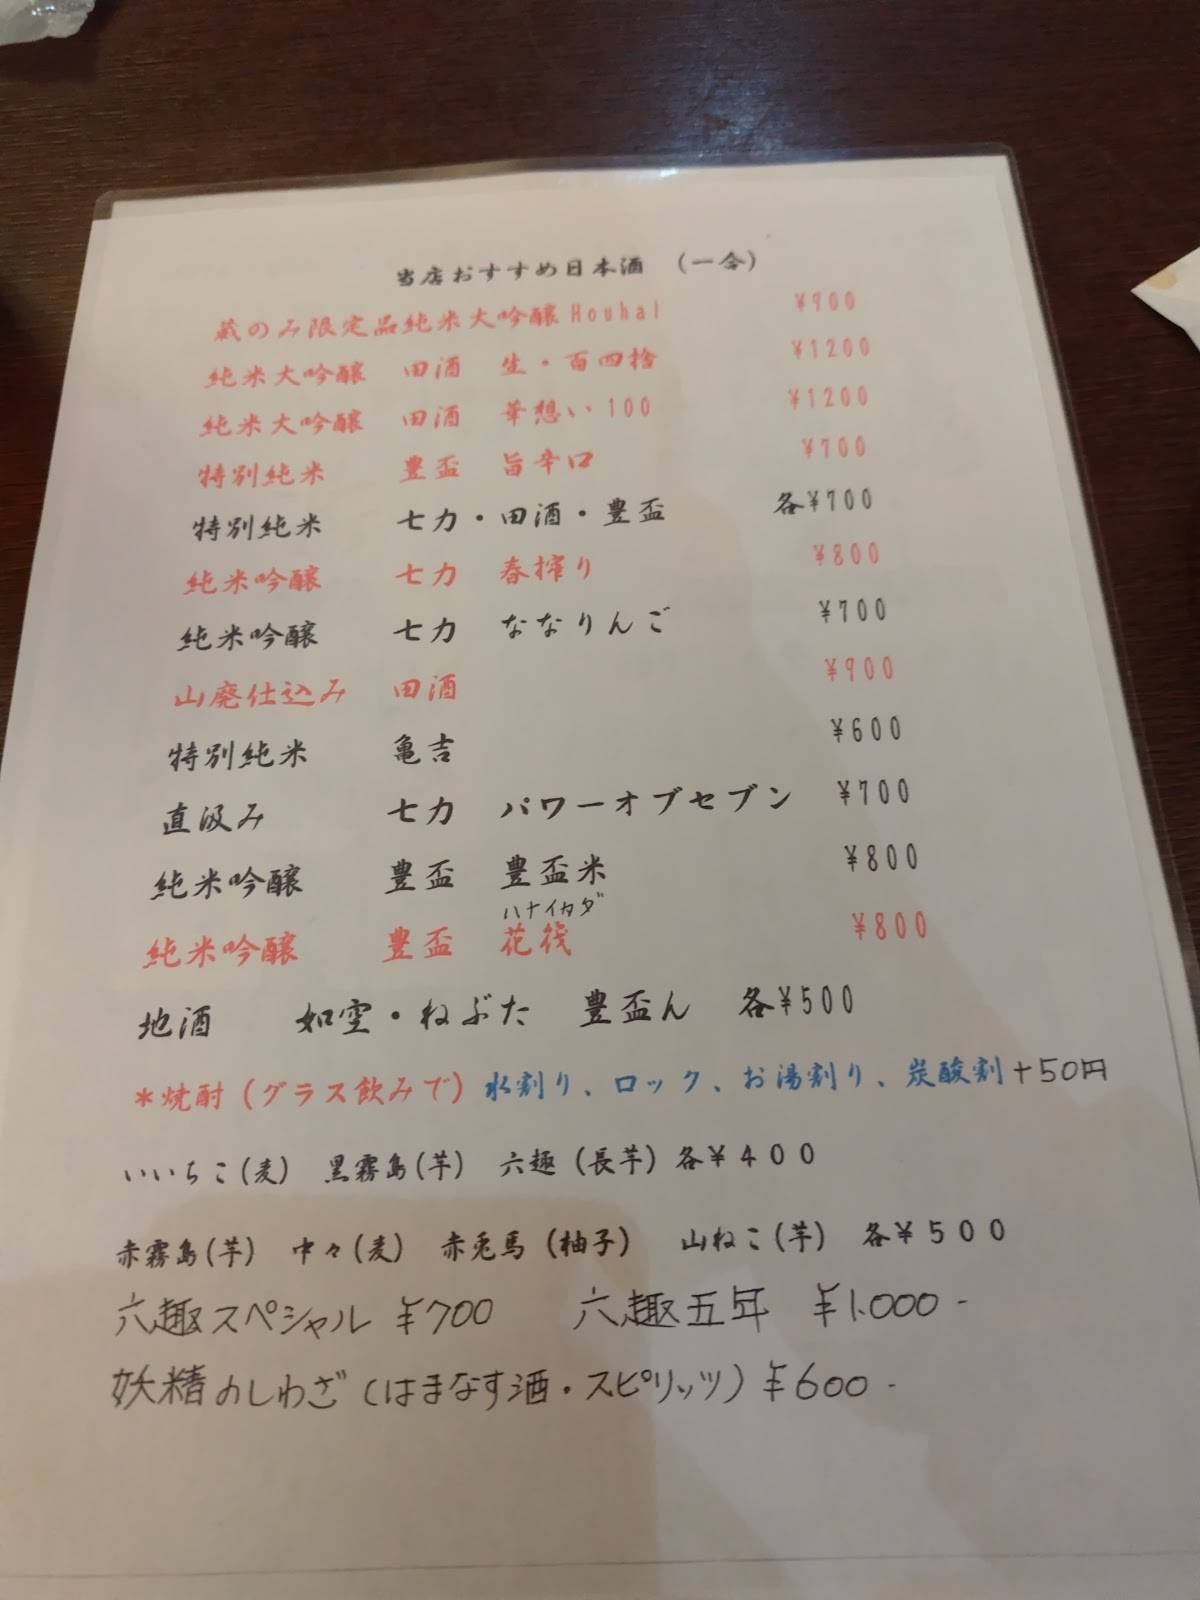 当店おすすめ日本酒 (一合)
蔵のみ限定品純米大吟醸Houhai ¥900
純米大吟醸 田酒 生・百四拾 ¥1200
純米大吟醸 田酒 華想い100 ¥1200
特別純米 豊盃 旨辛口 ¥700
特別純米 七力・田酒・豊盃 各¥700
純米吟醸 七力 春搾り ¥800
純米吟醸 七力 ななりんご ¥700
山廃仕込み 田酒 ¥900
特別純米 亀吉 ¥600
直汲み 七力 パワーオブセブン ¥700
純米吟醸 豊盃 豊盃米 ¥800
ハナイカダ
純米吟醸 豊盃 花筏 ¥800
地酒 如空・ねぶた 豊盃ん 各¥500
*焼酎(グラス飲みで)水割り、ロック、お湯割り、炭酸割+50円
いいちこ(麦) 黒霧島(芋) 六趣(長芋)各¥400
赤霧島(芋) 中々(麦) 赤兎馬(柚子) 山ねこ(芋) 各¥500
六趣スペシャル ¥700 六趣五年 ¥1.000-
妖精のしわざ(はまなす酒・スピリッツ)¥600-